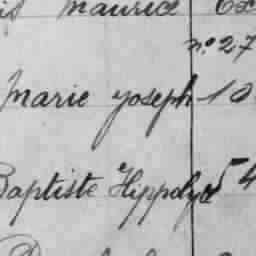 is Maurice
n.º 27
Marie Joseph 10
Baptiste Hippolyte 54